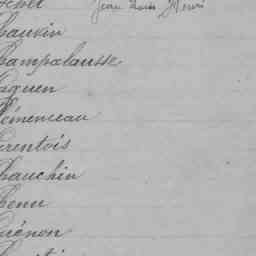 Jean Louis Henri
hauvin
hampalausse
aquen
lémenceau
rentois
hauchin
henu
uénon